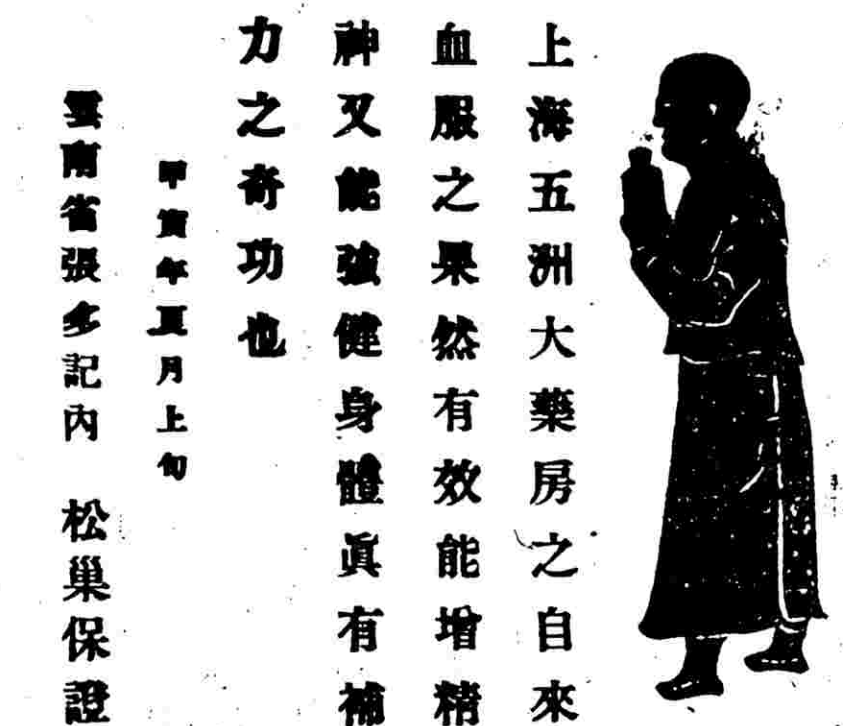 上海五洲大藥房之自來
血服之果然有效能增精
神又能強健身體眞有補
力之奇功也
甲寅年夏月上旬
雲南省張多記內　松巢保證